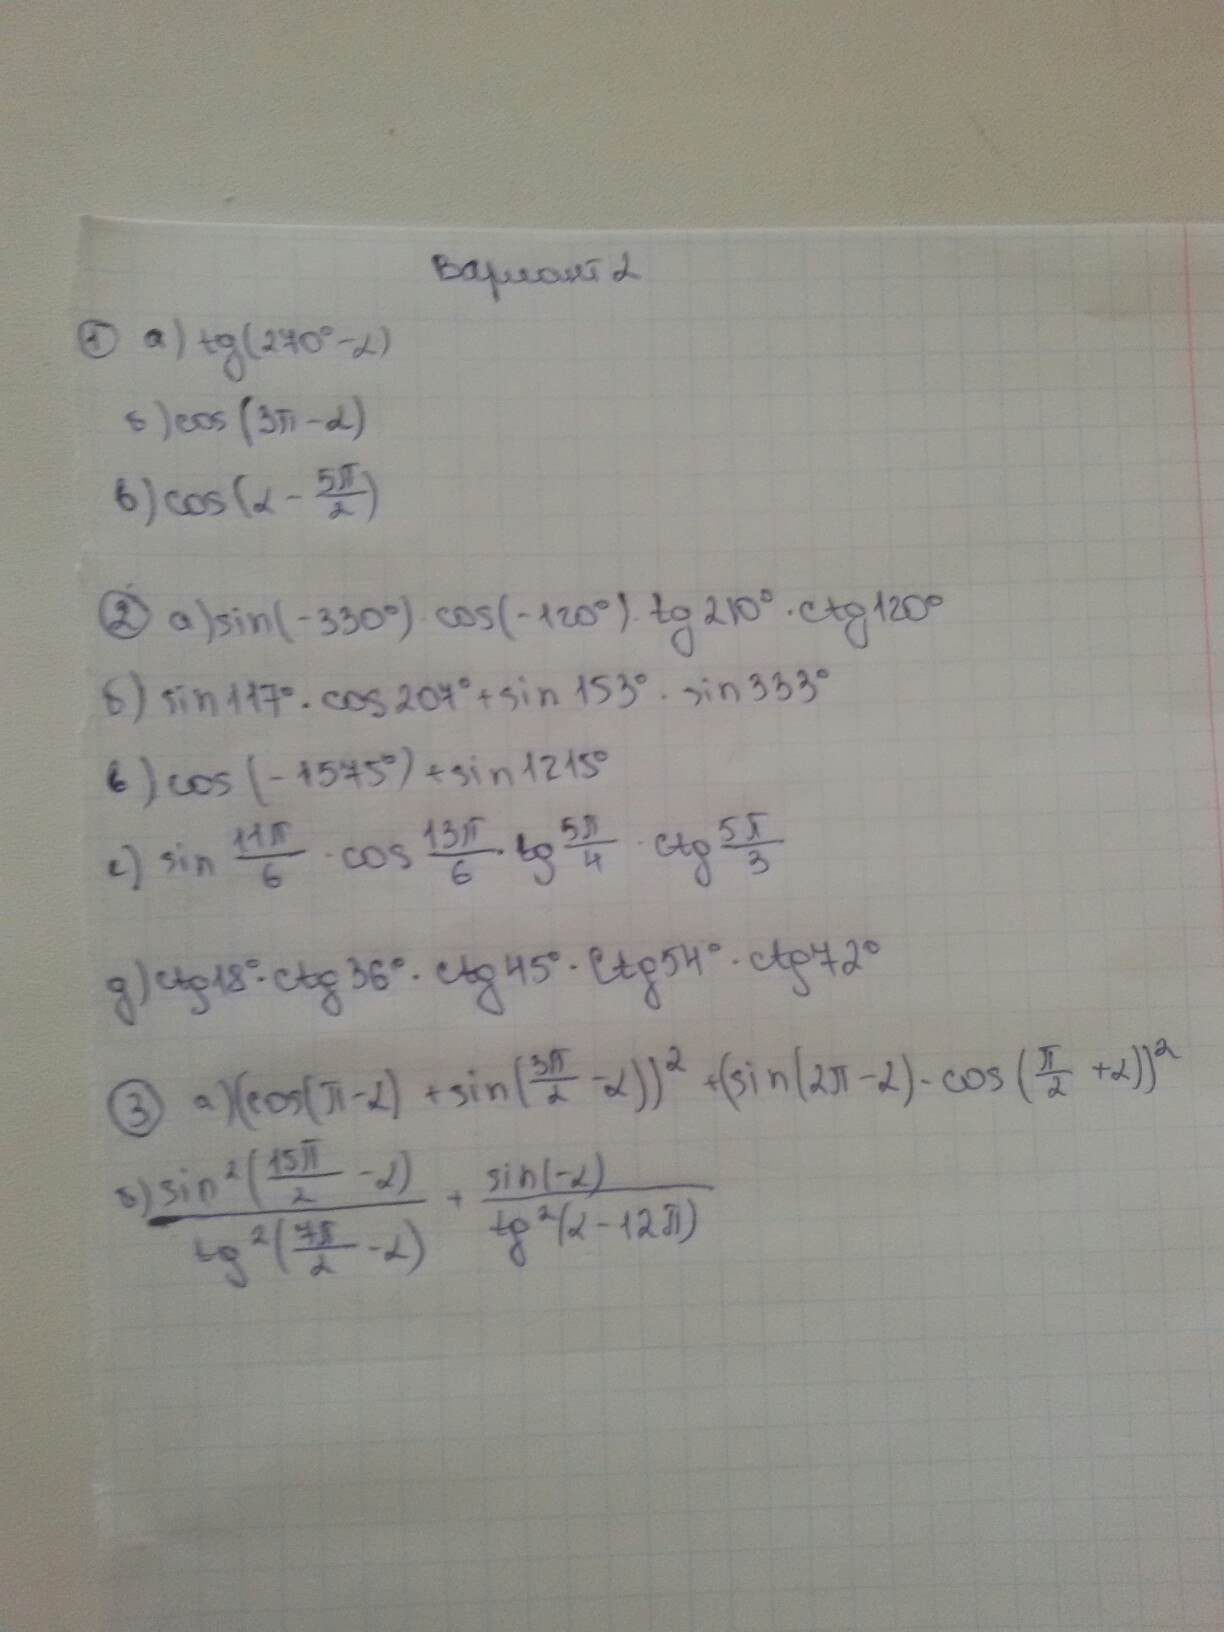 Вариант 2
① а) tg(270°-α)
б) cos(3π-α)
в) cos(α - 5π/2)
② а) sin(-330°)·cos(-120°)·tg210°·ctg120°
б) sin117°·cos207°+sin153°·sin333°
в) cos(-1575°)+sin1215°
г) sin 11π/6 · cos 13π/6 · tg 5π/4 · ctg 5π/3
д) ctg18°·ctg36°·ctg45°·ctg54°·ctg72°
③ а) (cos(π-α)+sin(3π/2 -α))²+(sin(2π-α)-cos(π/2 +α))²
б) sin²(15π/2 -α)/tg²(7π/2 -α) + sin(-α)/tg²(α-12π)